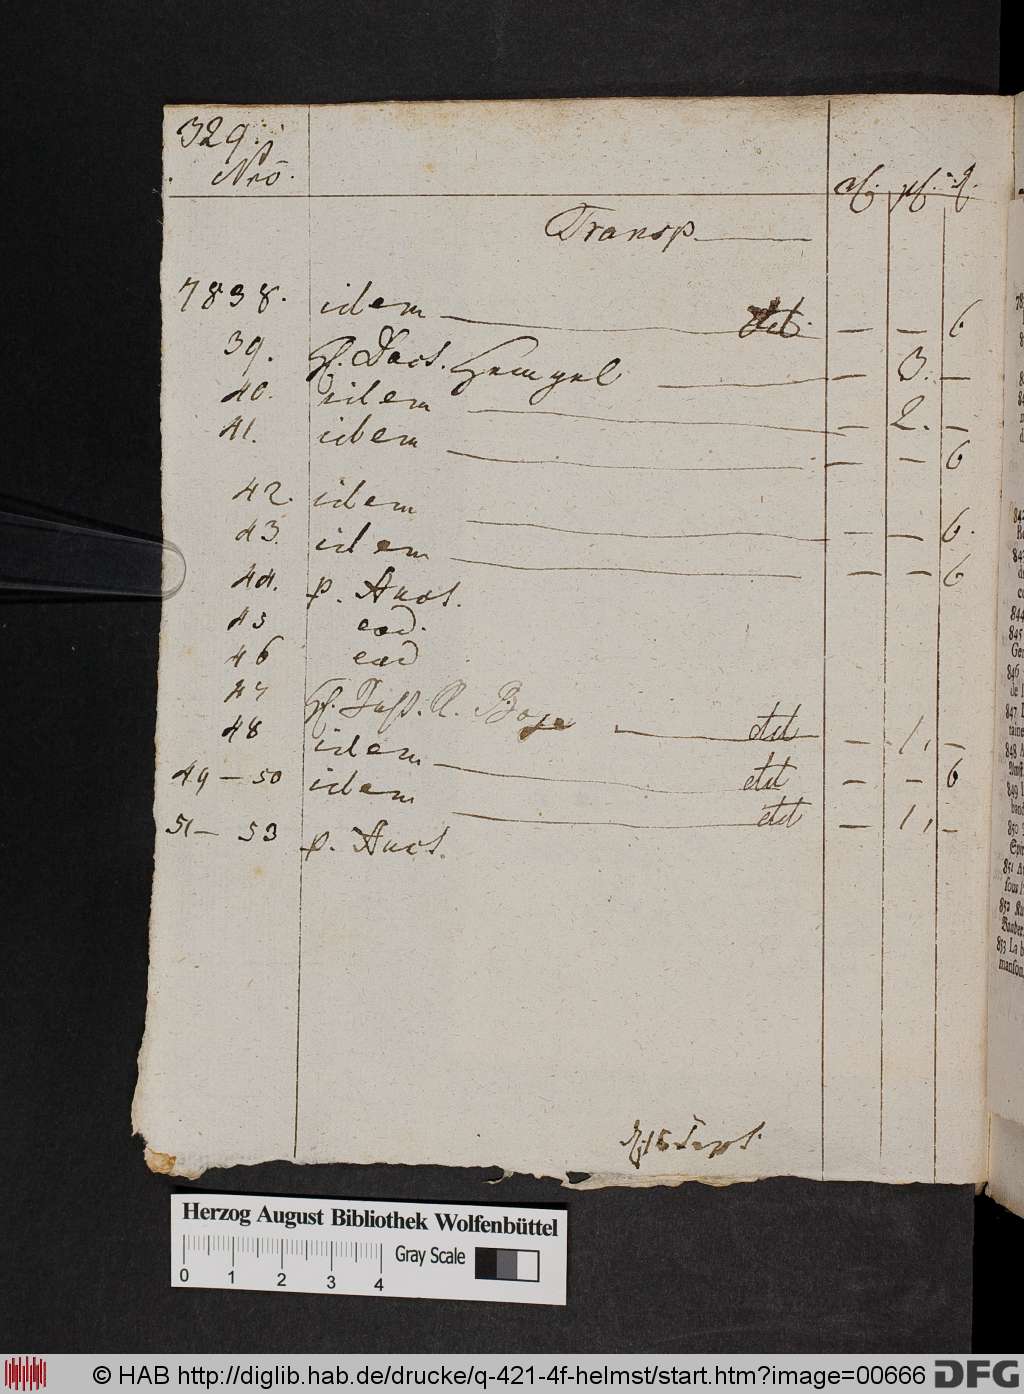 329.
Nrō.
Transp
7838. idem dt. — — 6
39. H. Doct. Hempel — 3. —
40. idem — 2. —
41. idem — — 6
42. idem — — 6.
43. idem — — 6
44. p. Auct.
45 ead.
46 ead
47 H. Just. R. dt — 1, —
48 idem dt — — 6
49 — 50 idem dt — 1, —
51 — 53 p. Auct.
15 Sept.
Herzog August Bibliothek Wolfenbüttel
0 1 2 3 4 Gray Scale
© HAB http://diglib.hab.de/drucke/q-421-4f-helmst/start.htm?image=00666 DFG